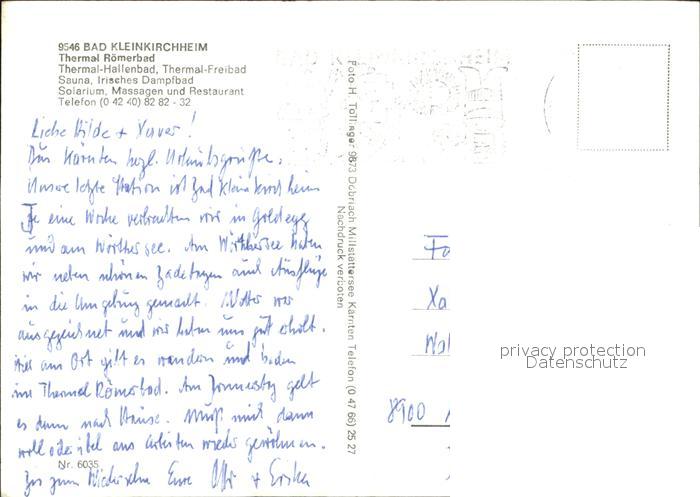 9546 BAD KLEINKIRCHHEIM
Thermal Römerbad
Thermal-Hallenbad, Thermal-Freibad
Sauna, Irisches Dampfbad
Solarium, Massagen und Restaurant
Telefon (0 42 40) 82 82 - 32
Liebe Hilde + Xaver!
Aus Kärnten herzl. Urlaubsgrüße.
Unsere letzte Station ist Bad Kleinkirchheim
Je eine Woche verbrachten wir in Goldegg
und am Wörthersee. Am Wörthersee haben
wir neben schönen Badetagen auch Ausflüge
in die Umgebung gemacht. Wetter war
ausgezeichnet und wir haben uns gut erholt.
Hier am Ort gilt es wandern und baden
im Thermal Römerbad. Am Donnerstag geht
es dann nach Hause. Muß mich dann
wohl oder übel ans Arbeiten wieder gewöhnen.
Bis zum Wiedersehn Eure + Erika
Nr. 6035
Foto H. Tollinger 9873 Döbriach Millstättersee Kärnten Telefon (0 47 66) 25 27
Nachdruck verboten
Fa
Xa
Wal
8900
privacy protection
Datenschutz